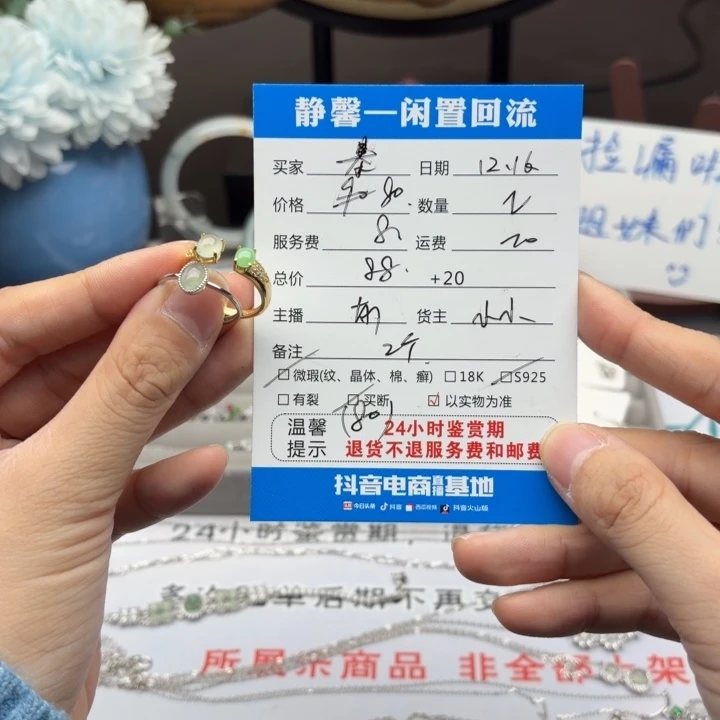 静馨—闲置回流
买家 秦 日期 12.16
价格 80. 数量 2
服务费 8 运费 20
总价 88. +20
主播 货主 小小
备注 2个
□微瑕(纹、晶体、棉、癣) □18K □S925
□有裂 □买断 ☑以实物为准
(80)
温馨提示 24小时鉴赏期
退货不退服务费和邮费
抖音电商直播基地
今日头条 抖音 西瓜视频 抖音火山版
捡漏
姐妹们
24小时鉴赏期,
后期不再
所展示商品 非全部上架